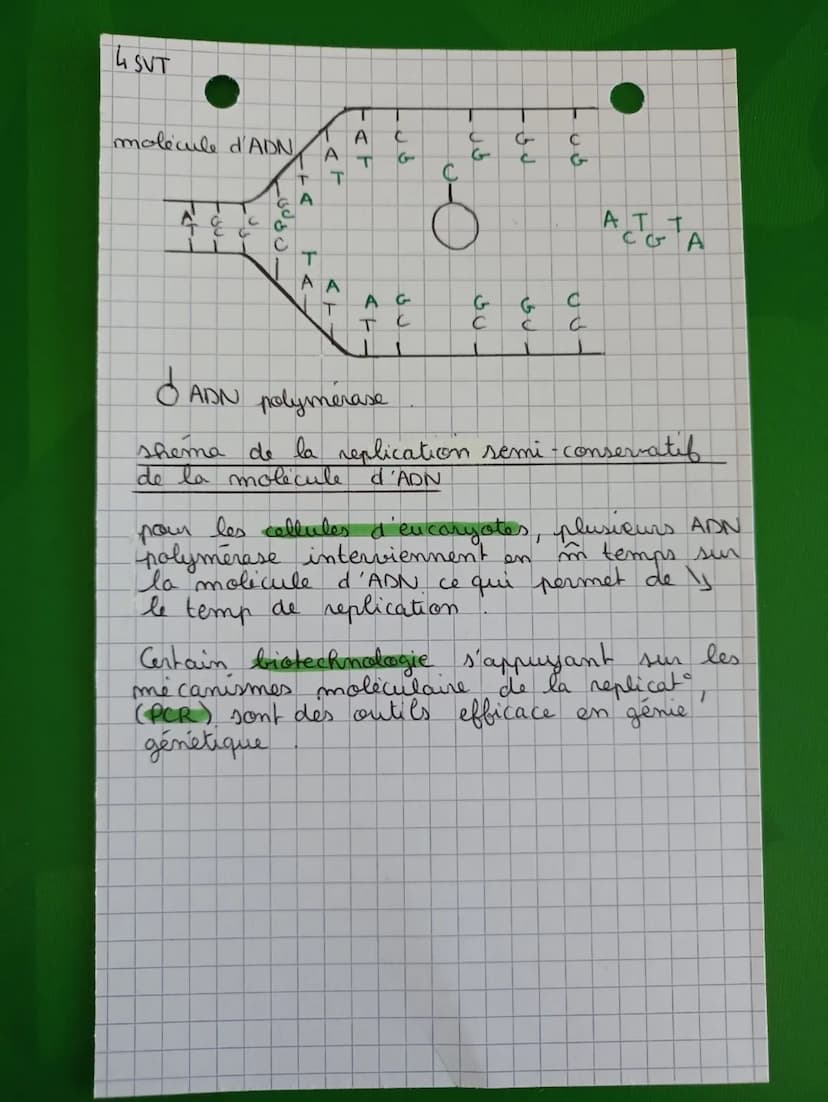 4 SVT
molécule d'ADN
A C C G C
A T G G C G
T T C
G A
A G C C A T T
T C G G C G A
C T
A A A G G G C
T T C C C G
ADN polymérase.
shéma de la replication semi-conservatif
de la molécule d'ADN
pour les cellules d'eucaryotes, plusieurs ADN
polymérase interviennent en m̂ temps sur
la molécule d'ADN ce qui permet de ↘
le temp de replication.
Certain biotechnologie s'appuyant sur les
mécanismes moléculaire de la replicat°,
(PCR) sont des outils efficace en génie
génétique.